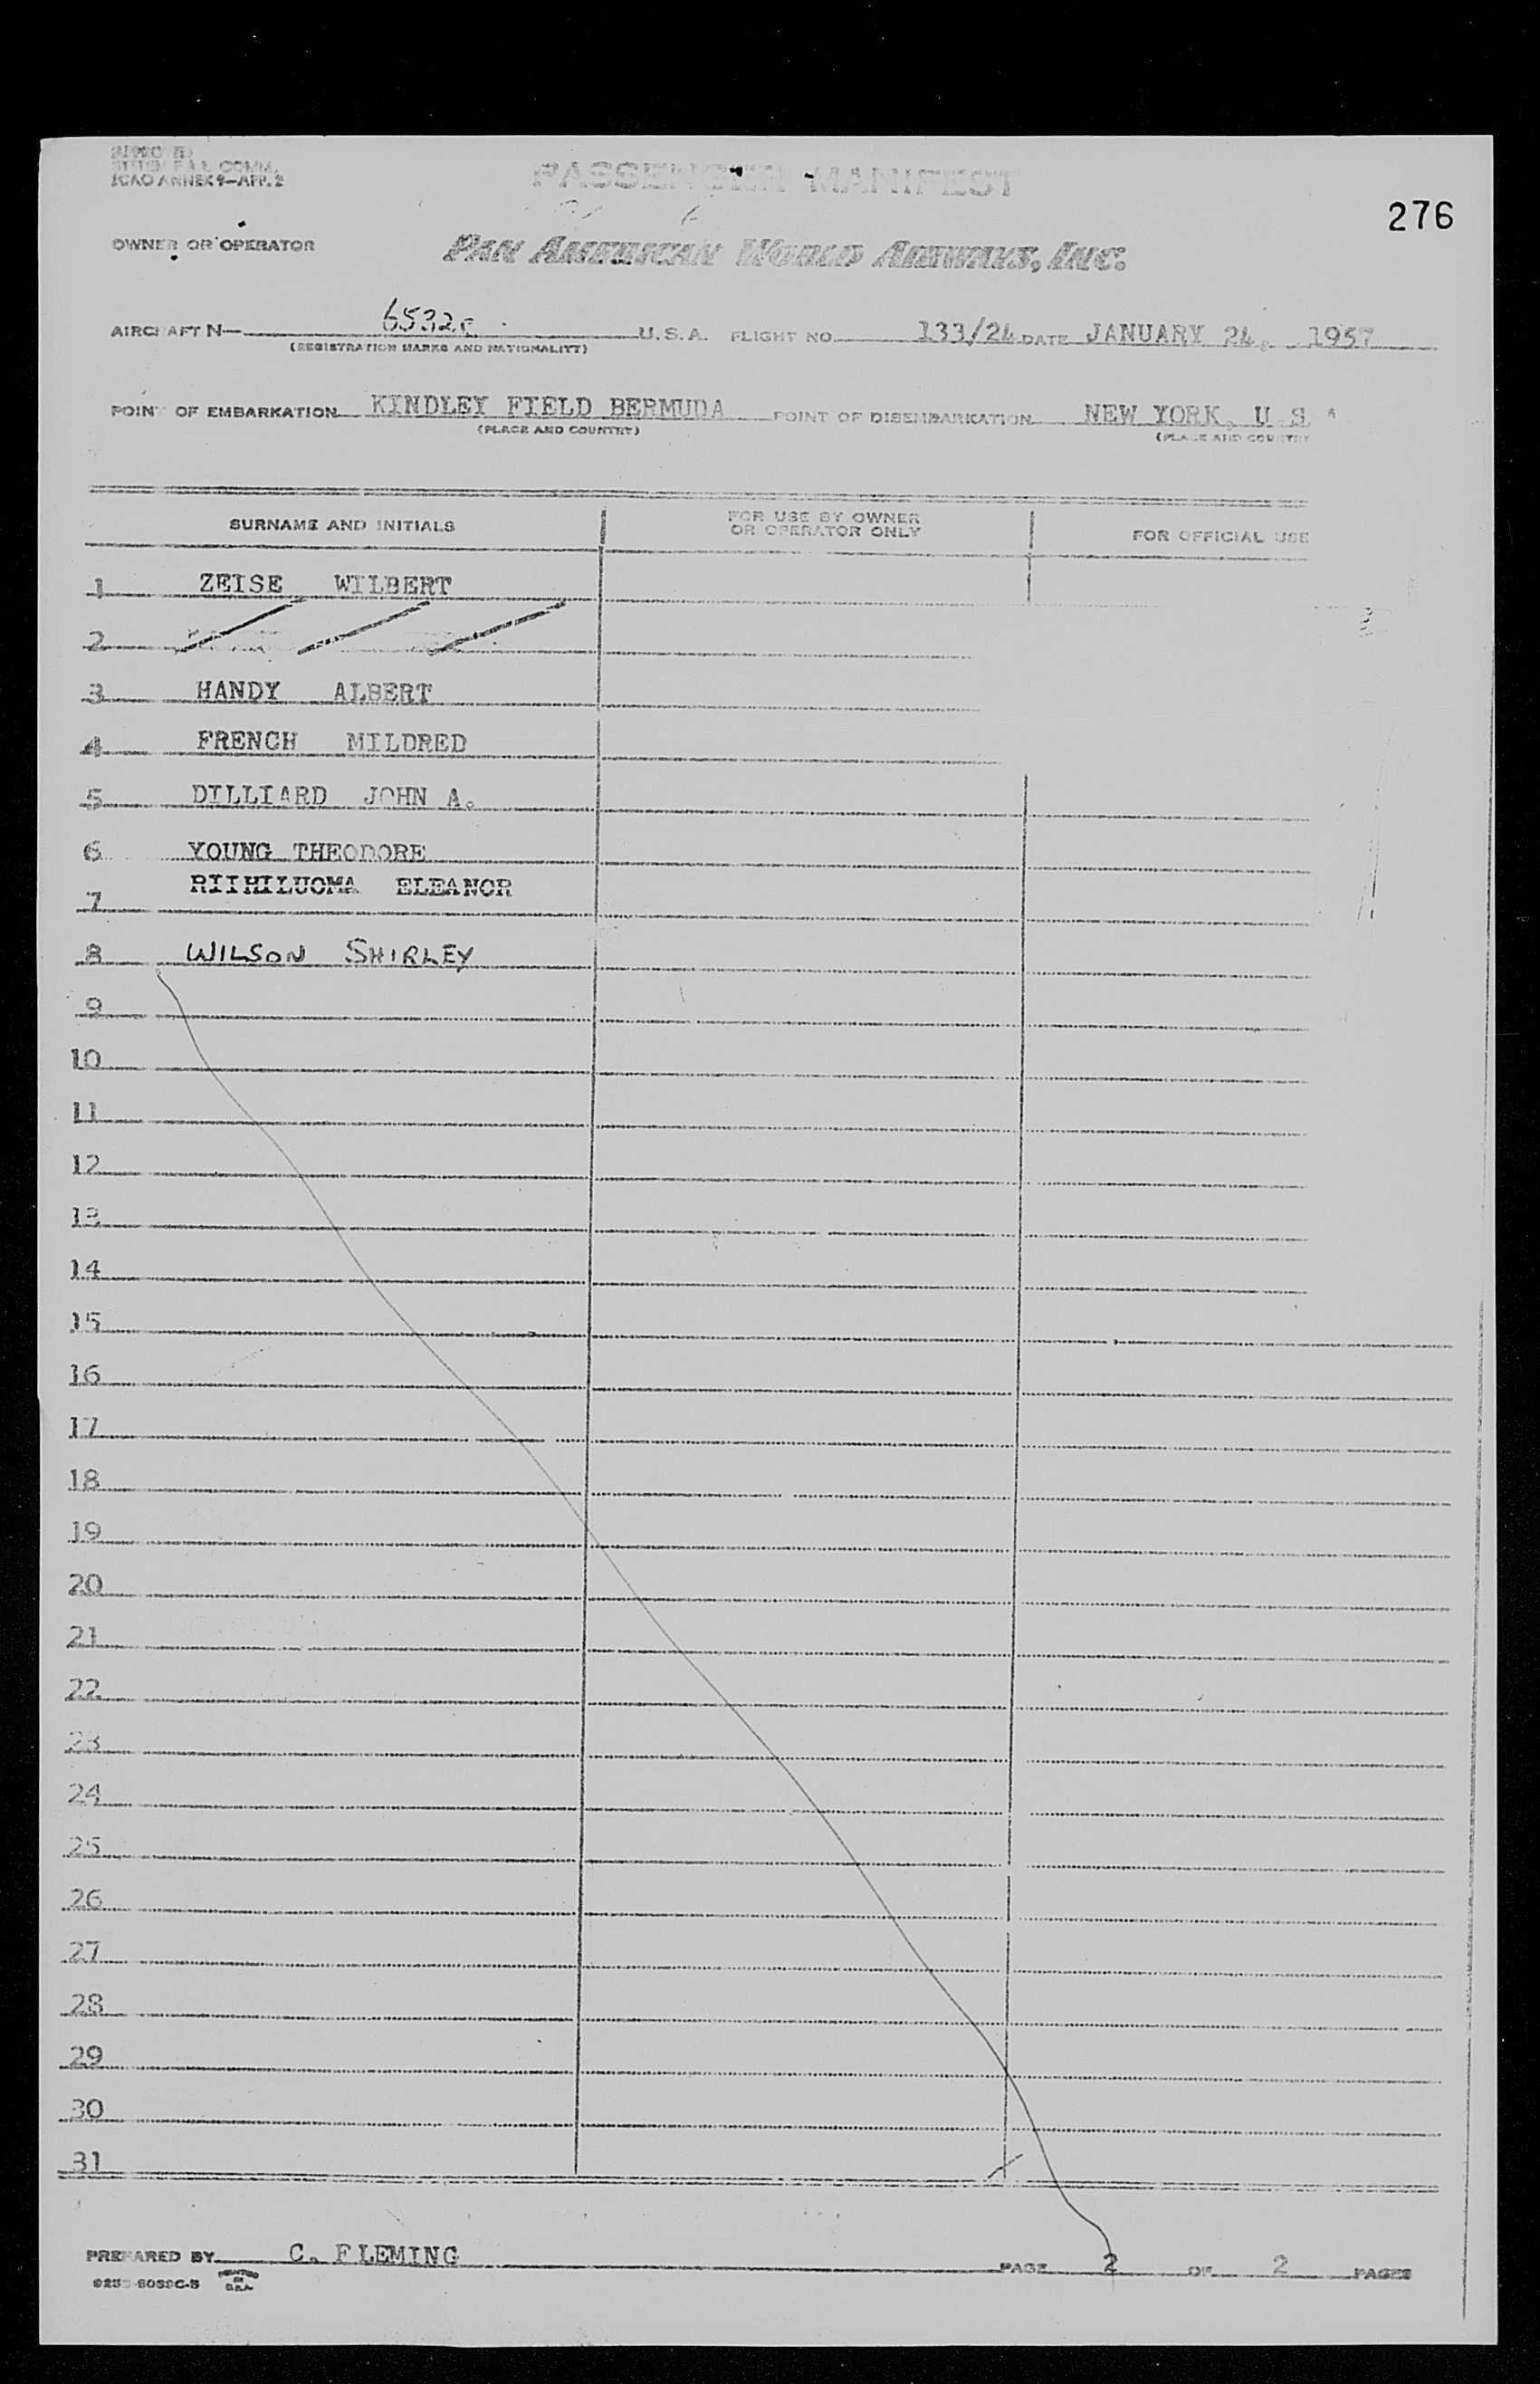 ICAO ANNEX 9—APP. 2
PASSENGER MANIFEST
276
OWNER OR OPERATOR PAN AMERICAN WORLD AIRWAYS, INC.
AIRCRAFT N— 6532C U.S.A. FLIGHT NO. 133/24 DATE JANUARY 24, 1957
(REGISTRATION MARKS AND NATIONALITY)
POINT OF EMBARKATION KINDLEY FIELD BERMUDA POINT OF DISEMBARKATION NEW YORK, U S A
(PLACE AND COUNTRY) (PLACE AND COUNTRY
SURNAME AND INITIALS FOR USE BY OWNER OR OPERATOR ONLY FOR OFFICIAL USE
1 ZEISE WILBERT
2
3 HANDY ALBERT
4 FRENCH MILDRED
5 DILLIARD JOHN A.
6 YOUNG THEODORE
7 RIIHILUOMA ELEANOR
8 WILSON SHIRLEY
9
10
11
12
13
14
15
16
17
18
19
20
21
22
23
24
25
26
27
28
29
30
31
PREPARED BY C. FLEMING PAGE 2 OF 2 PAGES
PRINTED IN U.S.A.